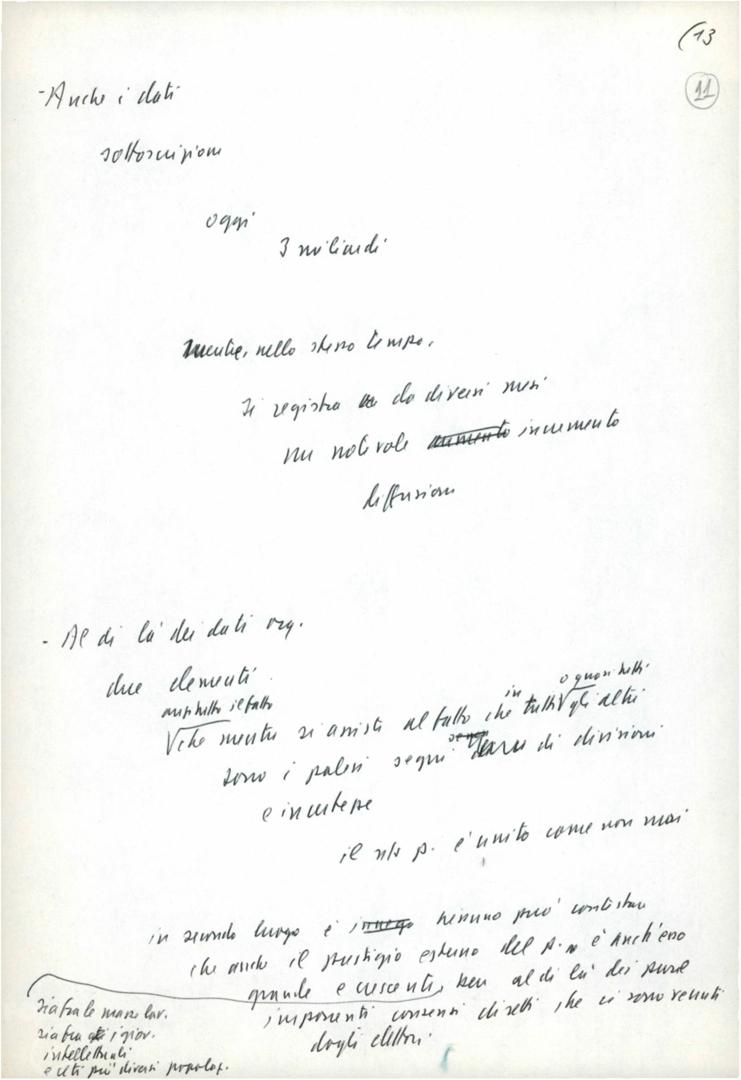 (13
11
- Anche i dati
sottoscrizione
oggi
3 miliardi
Mentre, nello stesso tempo,
si registra da diversi mesi
un notevole aumento incremento
diffusione
- Al di là dei dati org.
due elementi
anzitutto il fatto
o quasi tutti
che mentre si assiste al fatto che in tutti gli altri
sono i palesi segni di divisioni
e incertezze
il ns p. è unito come non mai
in secondo luogo è nessuno può contestare
che anche il prestigio esterno del p. è anch'esso
grande e crescente, ben al di là dei pure
imponenti consensi diretti che ci sono venuti
dagli elettori
sia fra le masse lav.
sia fra i giov.
intellettuali
e ceti più diversi popolaz.